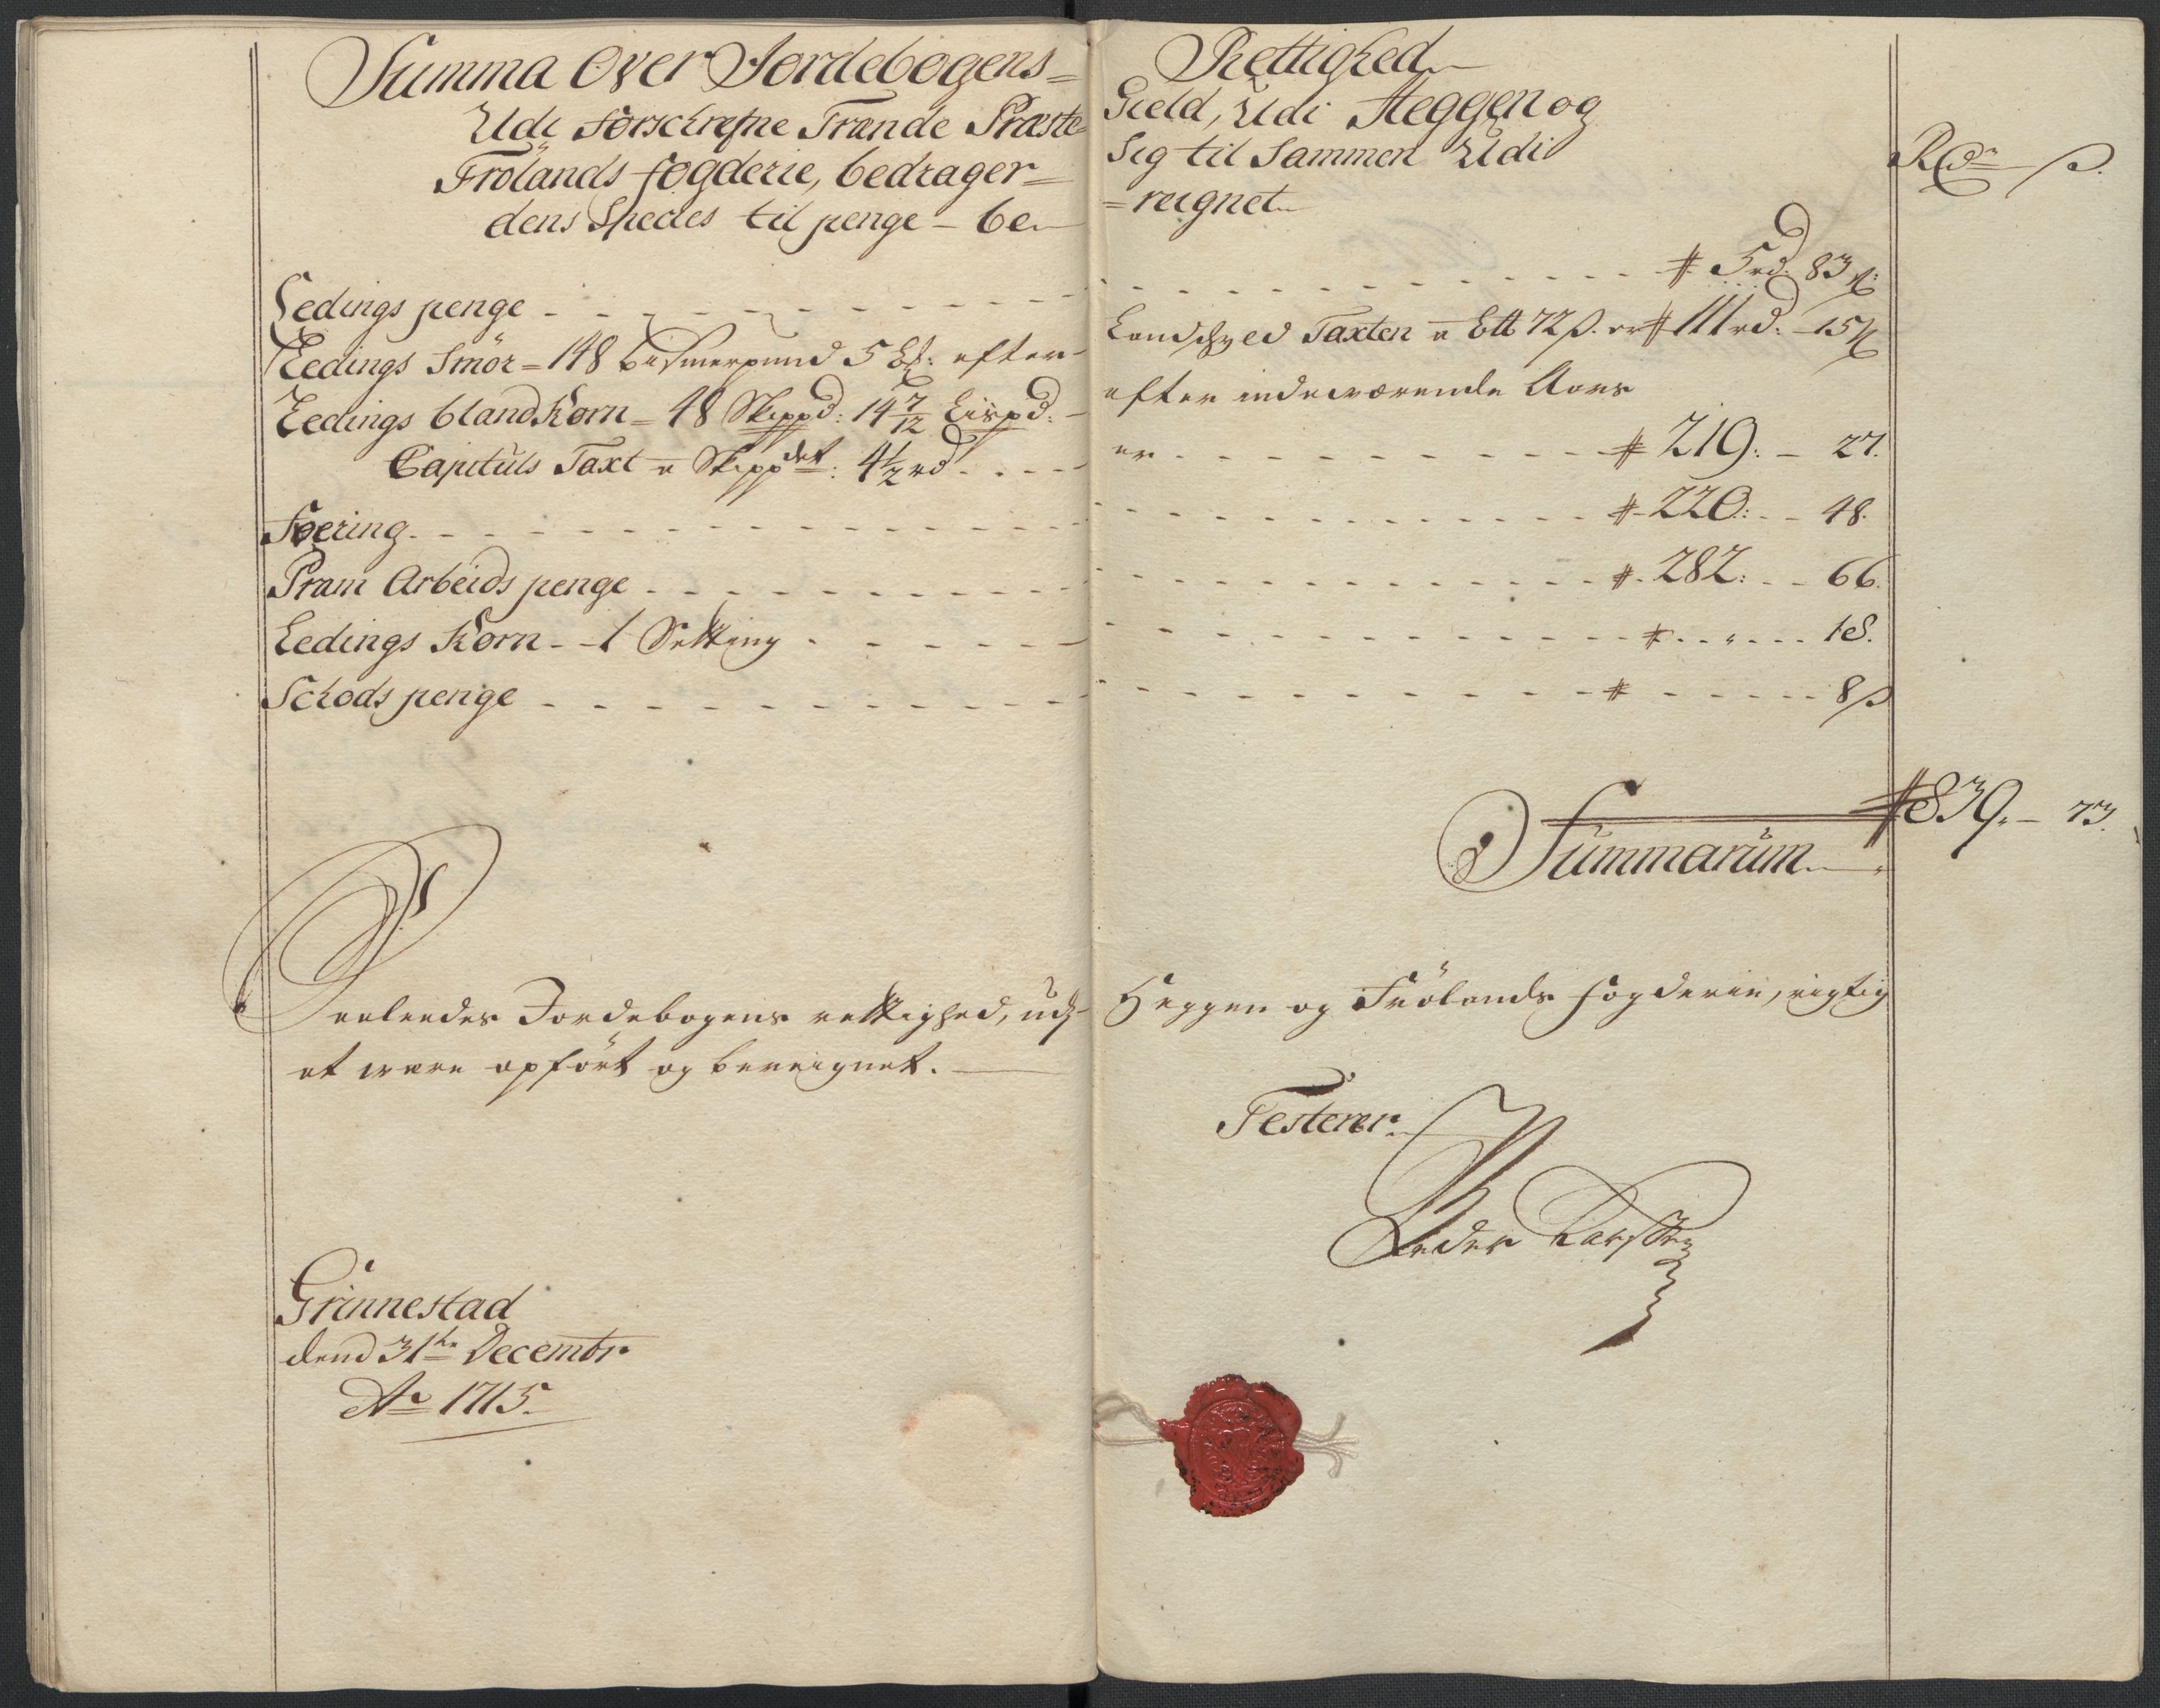 Summa Over Jordebogens= Rettighed
Udi forschrefne Trænde Præste= Gield, Udi Heggen og
Frölands fogderie, bedrager= Sig til Sammen Udi
dens Species til penge - be- =reignet
Rdr ß.
Ledings penge - - - # 5 rd. 83 ß:
Ledings Smör = 148 bismerpund 5 ℔: efter- Landschyed Taxten a Ett 72 ß. er # 111 rd: - 15 ß
Ledings bland Korn = 48 Skippd: 14 7/12 Lispd: - efter indeværende Aars
Capituls Taxt a Skippdet: 4 1/2 rd - - - er - - - # 219: - 27.
Foering - - - # 220: - 48.
Pram Arbeids penge - - - # 282: - 66.
Ledings Korn - 1 Setting - - - # - " - 18.
Schods penge - - - # - - - 8 ß
Summarum # 839. - 73.
Jordebogens rettighed, udj Heggen og Frölands fogderie, rigtig
at være opfört og bereignet.
Testerer
Peder
Grinnestad
dend 31te Decembr
Ao 1715.